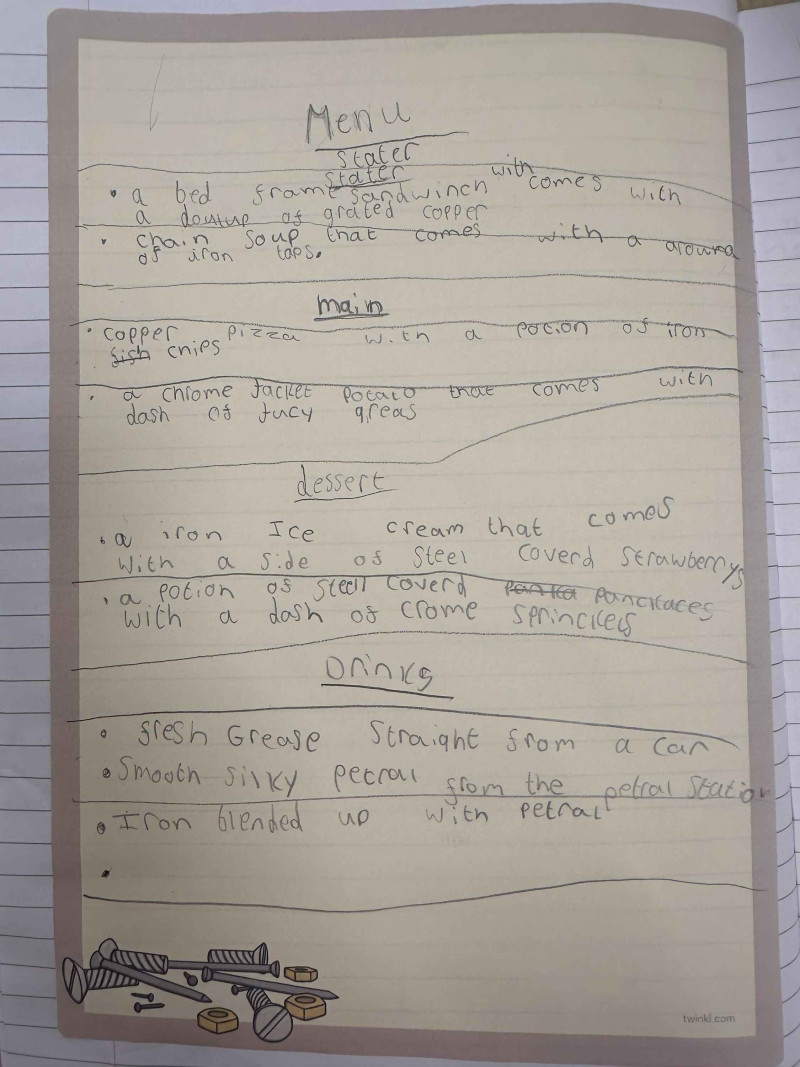 Menu
stater
stater
• a bed frame sandwinch with comes with
a of grated copper
• chain soup that comes with a
of iron tops.
main
• copper pizza with a potion of iron
fish chips
• a chrome Jacket potato that comes with
dash of Jucy greas
dessert
• a iron Ice cream that comes
with a side of steel coverd strawberrys
• a potion of steel coverd panka pancikaces
with a dash of crome sprinckels
Drinks
• fresh Grease straight from a can
• Smooth silky petral from the petral station
• Iron blended up with petral
•
twinkl.com